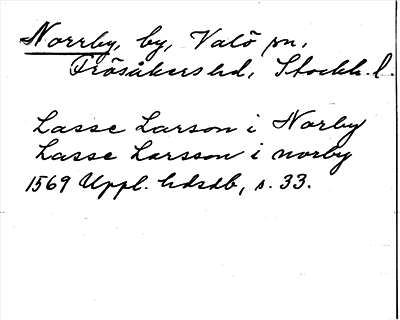 Norrby, by, Valö sn,
Frösåkers hd, Stockh. l.
Lasse Larson i Norby
Lasse Larsson i norby
1569 Uppl. hdsdb, s. 33.